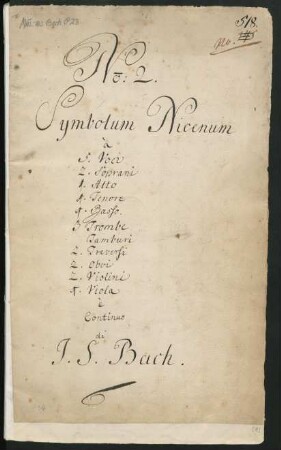 518.
No: 2.
Symbolum Nicenum
à
5. Voci
2. Soprani
1. Alto
1. Tenore
1. Basso.
3 Trombe
Tamburi
2. Traversi
2. Oboi
2. Violini
1. Viola
è
Continuo
di
J. S. Bach.